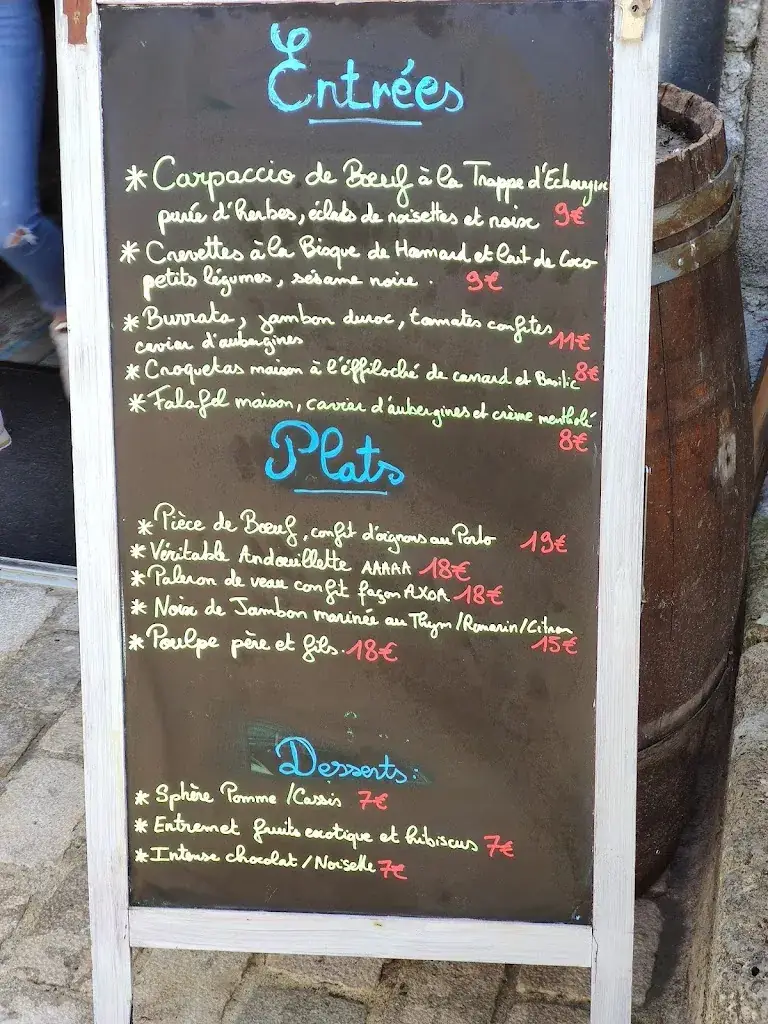 Entrées
* Carpaccio de Bœuf à la Trappe d'Echourgnac
purée d'herbes, éclats de noisettes et noix 9€
* Crevettes à la Bisque de Homard et lait de Coco
petits légumes, sésame noire. 9€
* Burrata, jambon duroc, tomates confites
caviar d'aubergines 11€
* Croquetas maison à l'éffiloché de canard et Basilic 8€
* Falafel maison, caviar d'aubergines et crème mentholé
8€
Plats
* Pièce de Bœuf, confit d'oignons au Porto 19€
* Véritable Andouillette AAAAA 18€
* Paleron de veau confit façon AXOA 18€
* Noix de Jambon marinée au Thym/Romarin/Citron
15€
* Poulpe père et fils. 18€
Desserts:
* Sphère Pomme/Cassis 7€
* Entremet fruits exotique et hibiscus 7€
* Intense chocolat/Noisette 7€